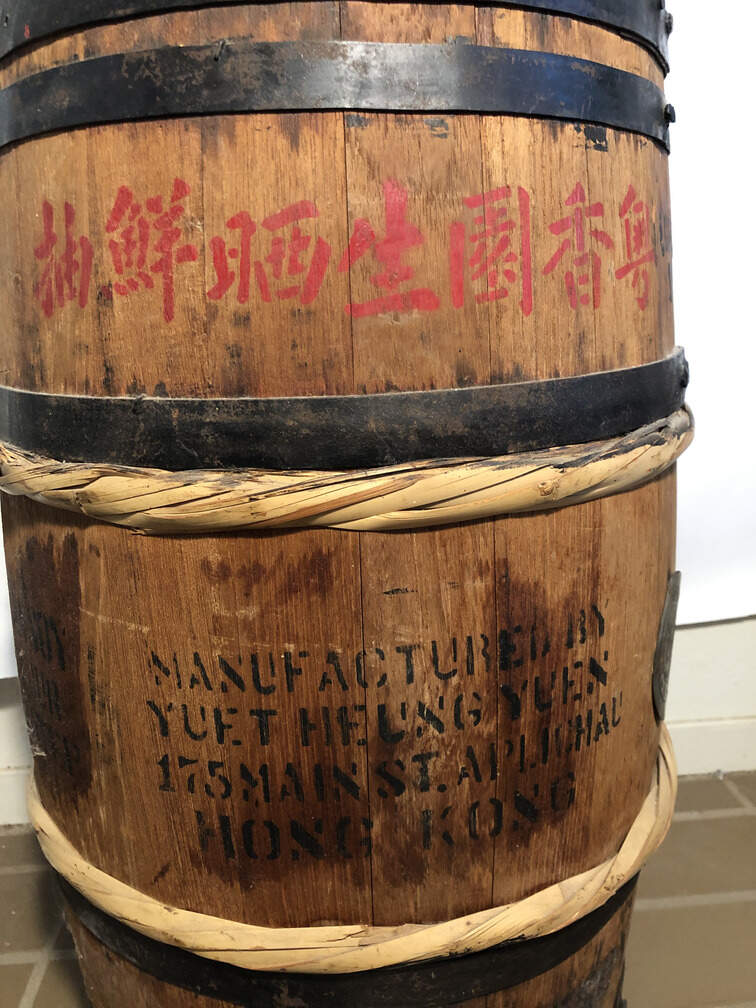 粵香園生晒鮮抽
MANUFACTURED BY
YUET HEUNG YUEN
175 MAIN ST. APLICHAU
HONG KONG